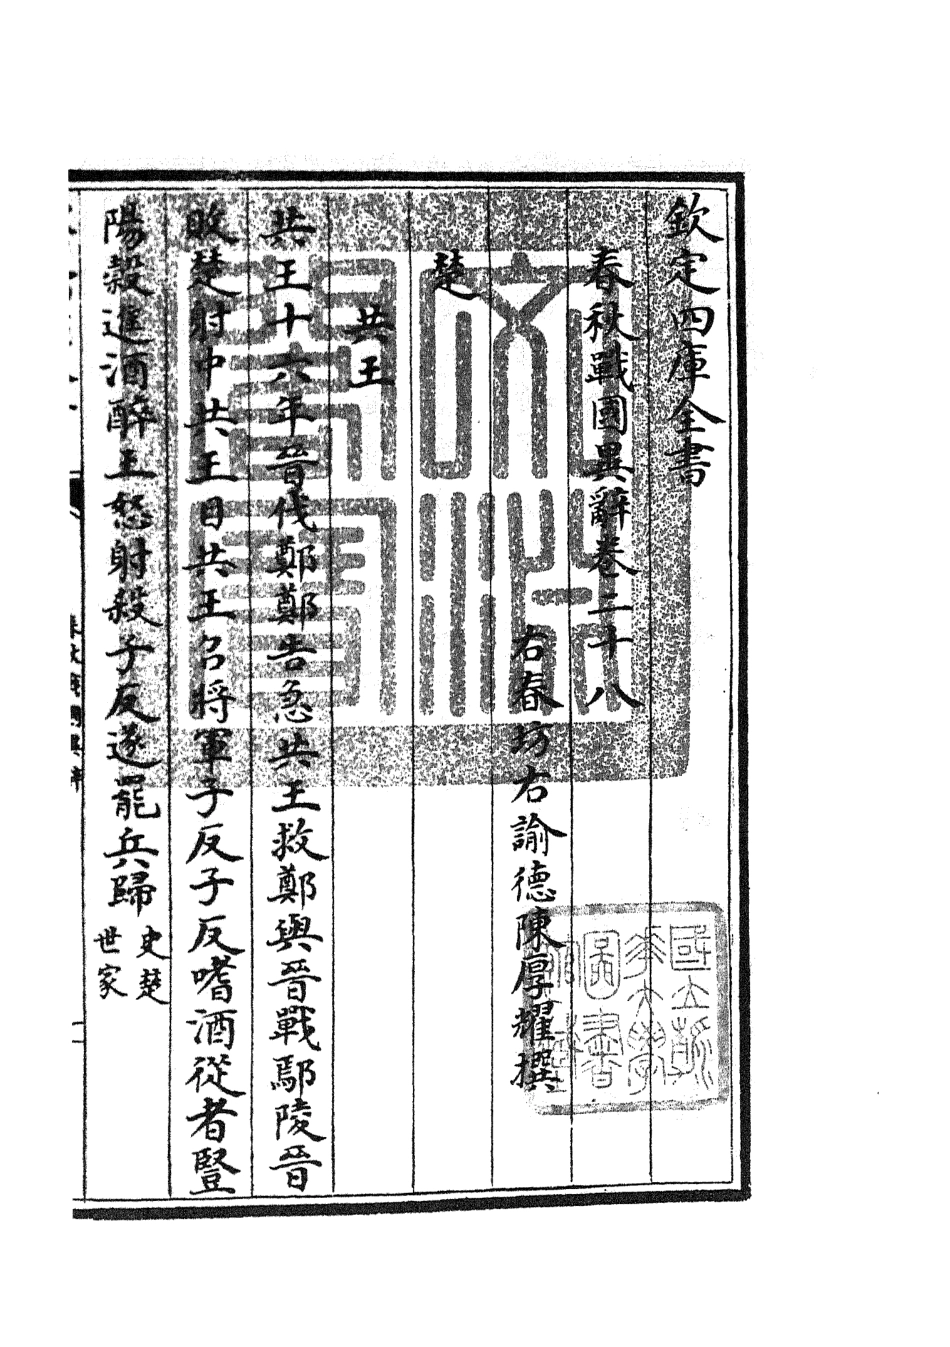 欽定四庫全書
春秋戰國異辭卷二十八
右春坊右諭德陳厚耀撰
楚
共王
共王十六年晉伐鄭鄭告急共王救鄭與晉戰鄢陵晉
敗楚射中共王目共王召將軍子反子反嗜酒從者豎
陽穀進酒醉王怒射殺子反遂罷兵歸
史楚
世家
春秋戰國異辭
文淵閣寶